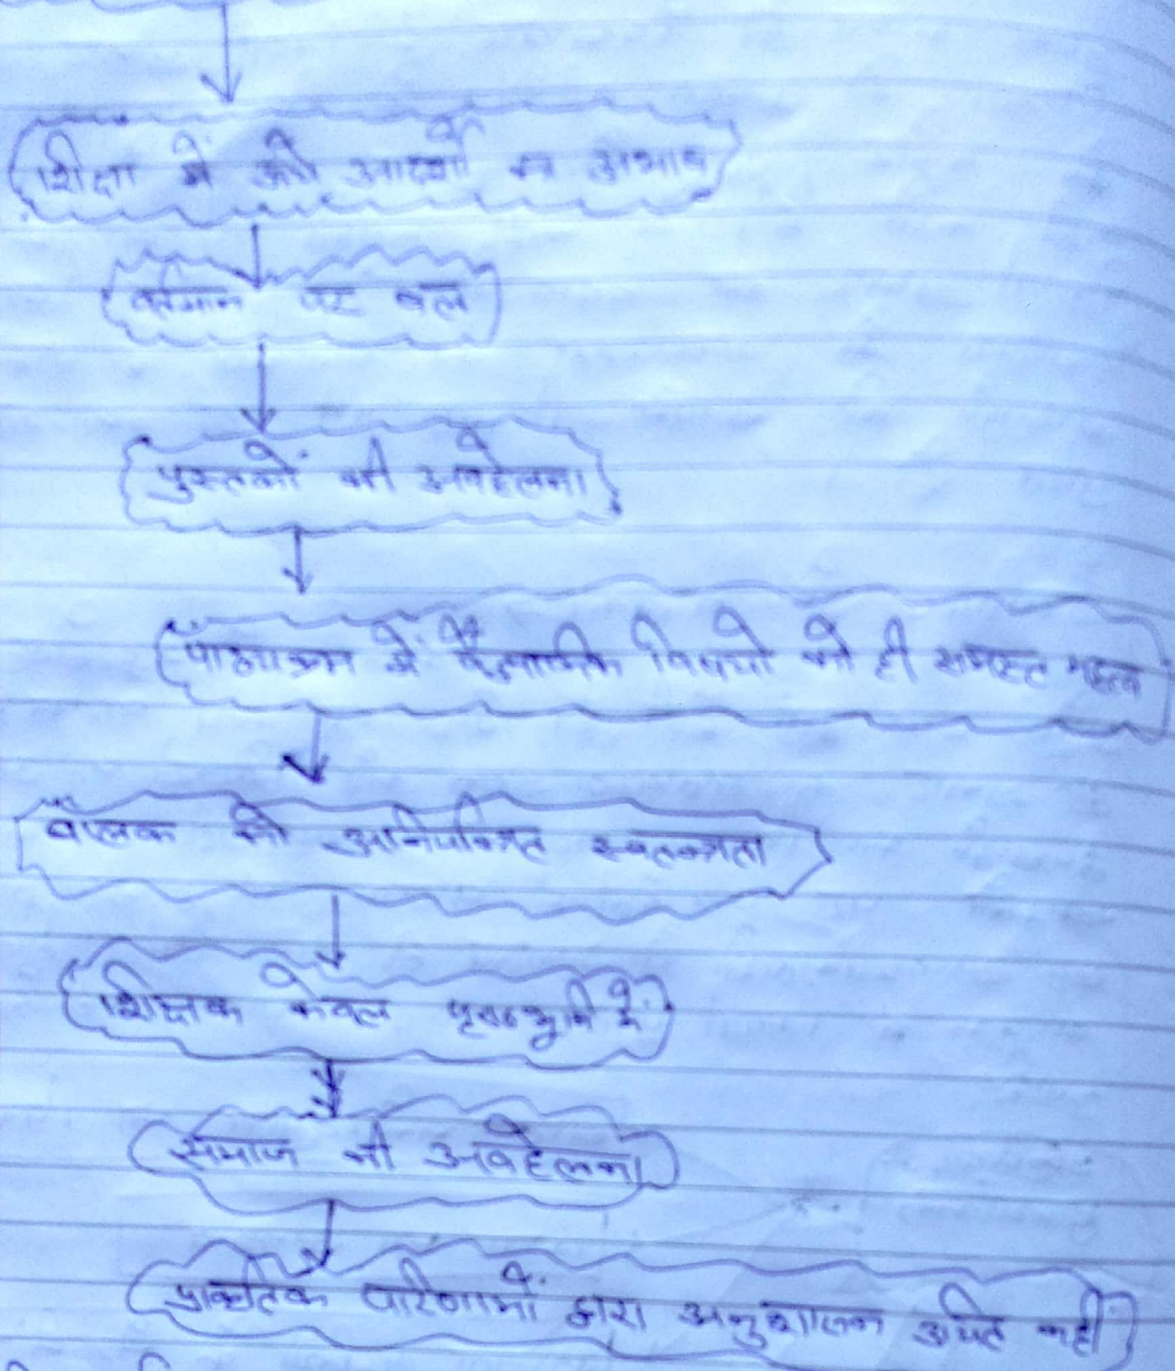 शिक्षा में ऊँचे आदर्शों का अभाव
वर्तमान पर बल
पुस्तकों की अवहेलना
पाठ्यक्रम में वैज्ञानिक विषयों को ही समस्त महत्व
बालक को अनियन्त्रित स्वतन्त्रता
शिक्षक केवल पृष्ठभूमि में
समाज की अवहेलना
प्राकृतिक परिणामों द्वारा अनुशासन उचित नहीं